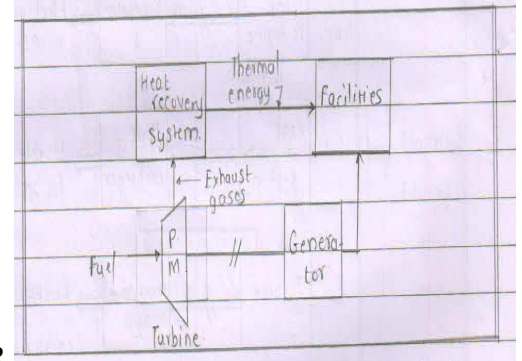 Heat
recovery
system.
Thermal
energy
Facilities
Exhaust
gases
Fuel
P.
M
Genera-
tor
Turbine